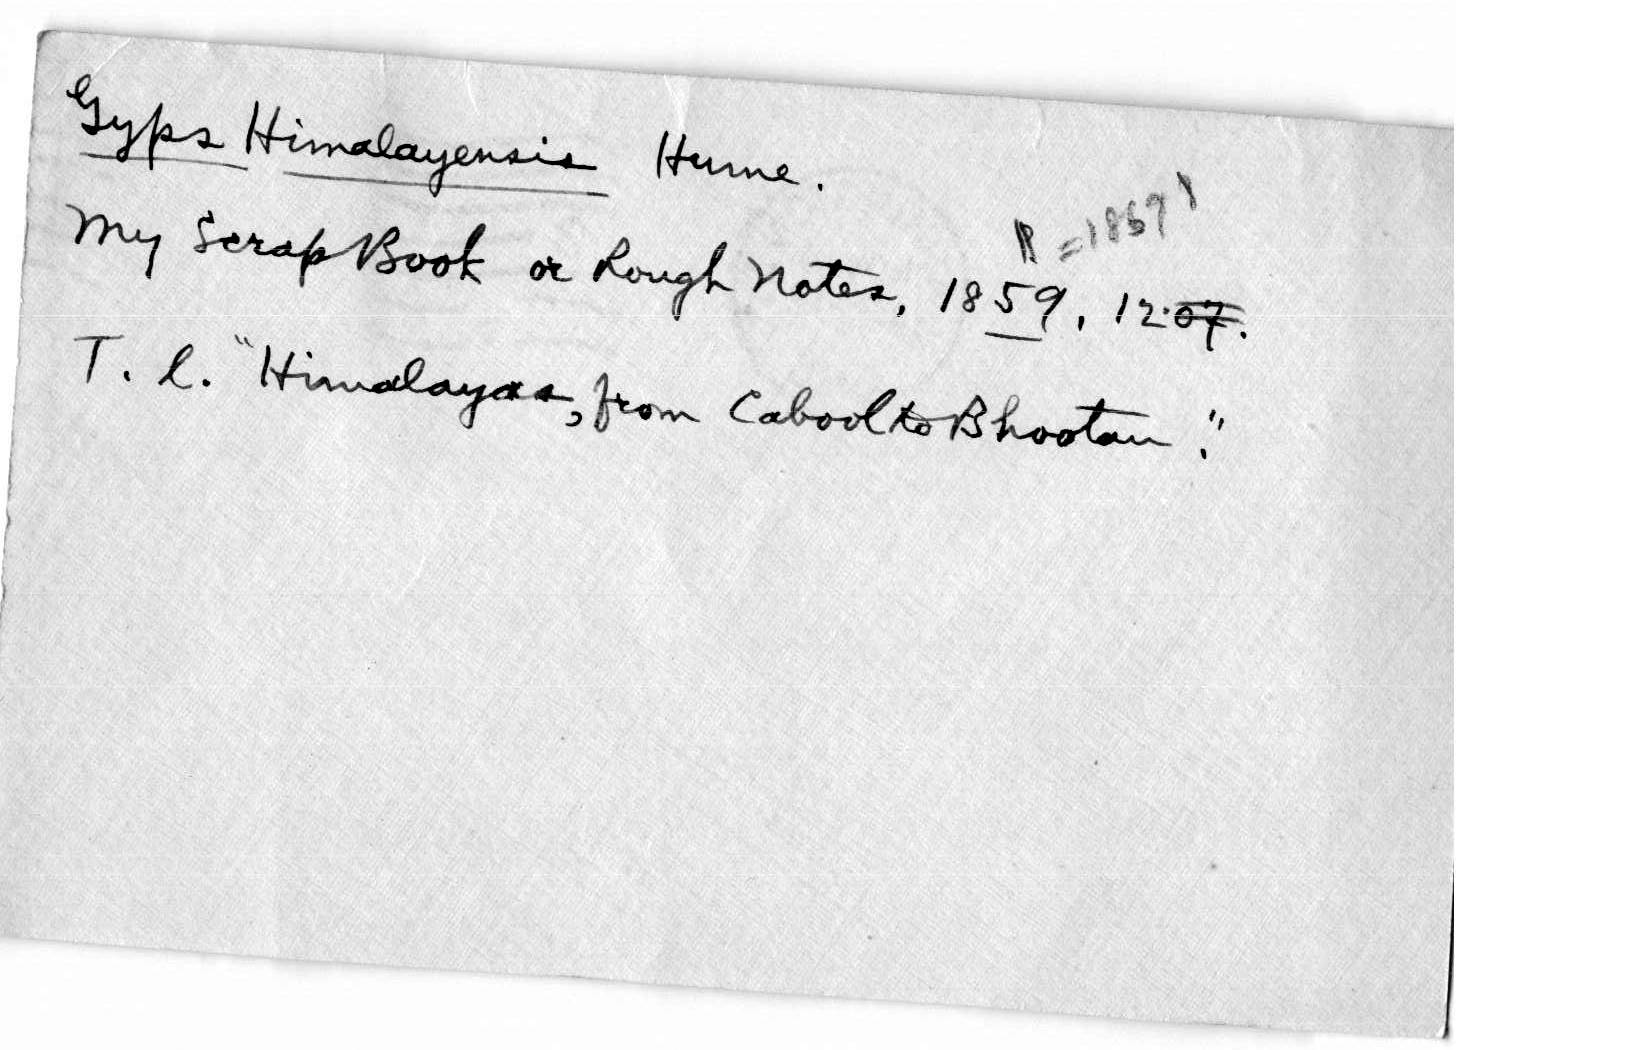 Gyps Himalayensis Hume.
= 1869
My Scrap Book or Rough Notes, 1859, 12.07.
T. l. "Himalayas, from Cabool to Bhootan."